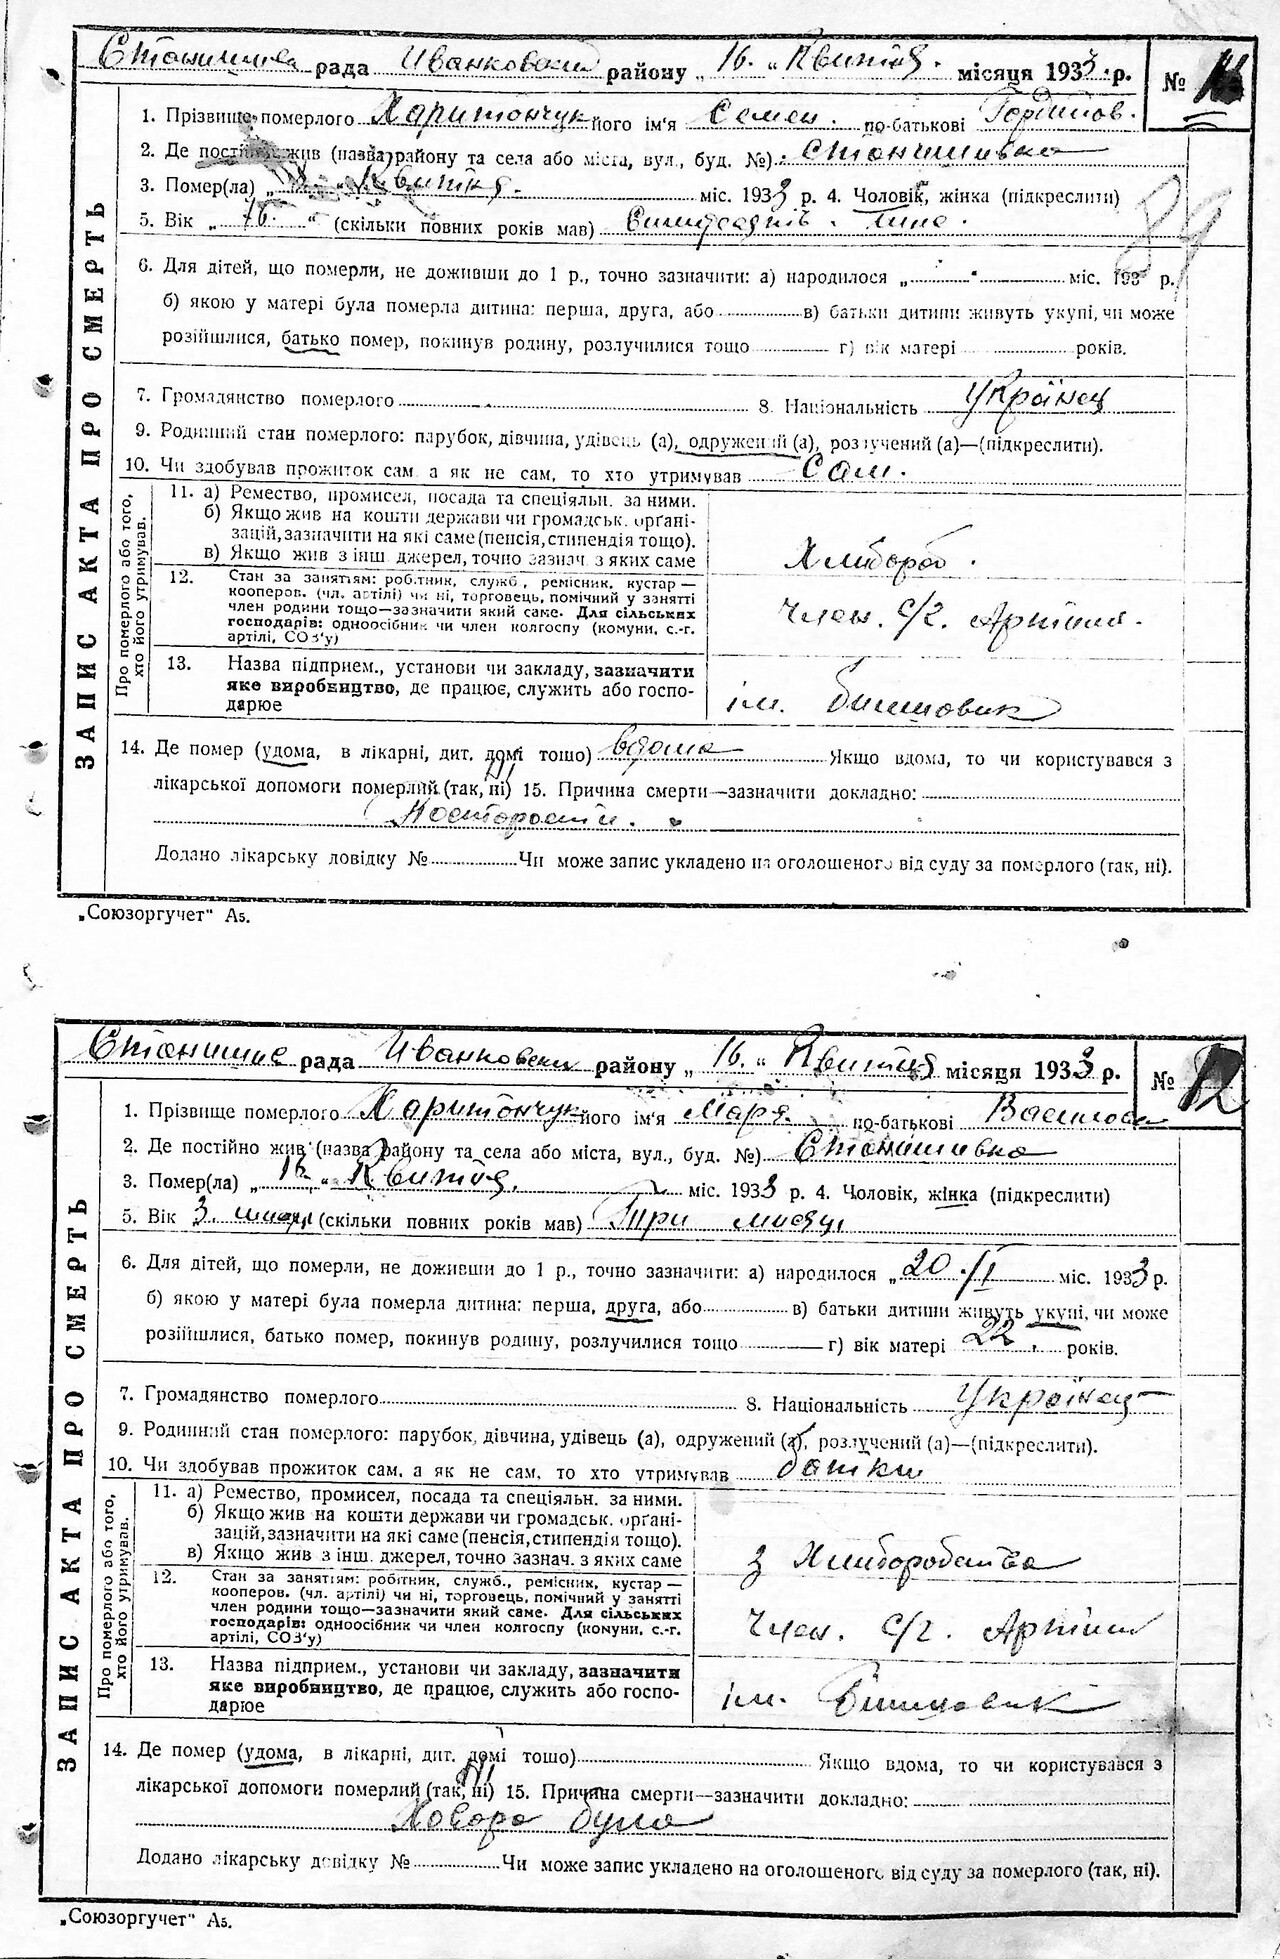 Станишівс рада Иванковский району „16.“ Квитня. місяця 1933.р. №
ЗАПИС АКТА ПРО СМЕРТЬ
1. Прізвище померлого Харитончук його ім'я Семен. по-батькові
2. Де постійно жив (назва району та села або міста, вул., буд. №) Станишивка
3. Помер(ла) „ “ Квитня. міс. 1933 р. 4. Чоловік, жінка (підкреслити)
5. Вік „76.“ (скільки повних років мав)
6. Для дітей, що померли, не доживши до 1 р., точно зазначити: а) народилося „ “ міс. 193 р.
б) якою у матері була померла дитина: перша, друга, або в) батьки дитини живуть укупі, чи може
розійшлися, батько помер, покинув родину, розлучилися тощо г) вік матері років.
7. Громадянство померлого 8. Національність Українец
9. Родинний стан померлого: парубок, дівчина, удівець (а), одружений (а), розлучений (а)—(підкреслити).
10. Чи здобував прожиток сам, а як не сам, то хто утримував Сам.
Про померлого або того, хто його утримував.
11. а) Ремество, промисел, посада та спеціяльн. за ними.
б) Якщо жив на кошти держави чи громадськ. орґані-
зацій, зазначити на які саме (пенсія, стипендія тощо).
в) Якщо жив з інш. джерел, точно зазнач. з яких саме
Хлибороб.
12. Стан за занятіям: робітник, служб., ремісник, кустар—
кооперов. (чл. артілі) чи ні, торговець, помічний у занятті
член родини тощо—зазначити який саме. Для сільських
господарів: одноосібник чи член колгоспу (комуни, с.-г.
артілі, СОЗ'у)
Член. С/г. Артили.
13. Назва підприєм., установи чи закладу, зазначити
яке виробництво, де працює, служить або госпо-
дарює
ім. Бильшовик
14. Де помер (удома, в лікарні, дит. домі тошо) вдома Якщо вдома, то чи користувався з
лікарської допомоги померлий (так, ні) 15. Причина смерти—зазначити докладно:
По старости.
Додано лікарську довідку № Чи може запис укладено на оголошеного від суду за померлого (так, ні).
„Союзоргучет“ А5.
Станишивс рада Иванковски району „16.“ Квитня місяця 1933 р. № 12
ЗАПИС АКТА ПРО СМЕРТЬ
1. Прізвище померлого Харитончук його ім'я Маря. по-батькові Василова
2. Де постійно жив (назва району та села або міста, вул., буд. №) Станишивка
3. Помер(ла) „ “ Квитня. міс. 1933 р. 4. Чоловік, жінка (підкреслити)
5. Вік 3. (скільки повних років мав) Три мисяці
6. Для дітей, що померли, не доживши до 1 р., точно зазначити: а) народилося „20./I міс. 1933 р.
б) якою у матері була померла дитина: перша, друга, або в) батьки дитини живуть укупі, чи може
розійшлися, батько помер, покинув родину, розлучилися тощо г) вік матері 22. років.
7. Громадянство померлого 8. Національність Українец
9. Родинний стан померлого: парубок, дівчина, удівець (а), одружений (а), розлучений (а)—(підкреслити).
10. Чи здобував прожиток сам, а як не сам, то хто утримував батьки
Про померлого або того, хто його утримував.
11. а) Ремество, промисел, посада та спеціяльн. за ними.
б) Якщо жив на кошти держави чи громадськ. орґані-
зацій, зазначити на які саме (пенсія, стипендія тощо).
в) Якщо жив з інш. джерел, точно зазнач. з яких саме
з Хлиборобства
12. Стан за занятіям: робітник, служб., ремісник, кустар—
кооперов. (чл. артілі) чи ні, торговець, помічний у занятті
член родини тощо—зазначити який саме. Для сільських
господарів: одноосібник чи член колгоспу (комуни, с.-г.
артілі, СОЗ'у)
Член. С/г. Артили
13. Назва підприєм., установи чи закладу, зазначити
яке виробництво, де працює, служить або госпо-
дарює
ім. Бильшовик
14. Де помер (удома, в лікарні, дит. домі тошо) Якщо вдома, то чи користувався з
лікарської допомоги померлий (так, ні) 15. Причина смерти—зазначити докладно:
Хвора була
Додано лікарську довідку № Чи може запис укладено на оголошеного від суду за померлого (так, ні).
„Союзоргучет“ А5.